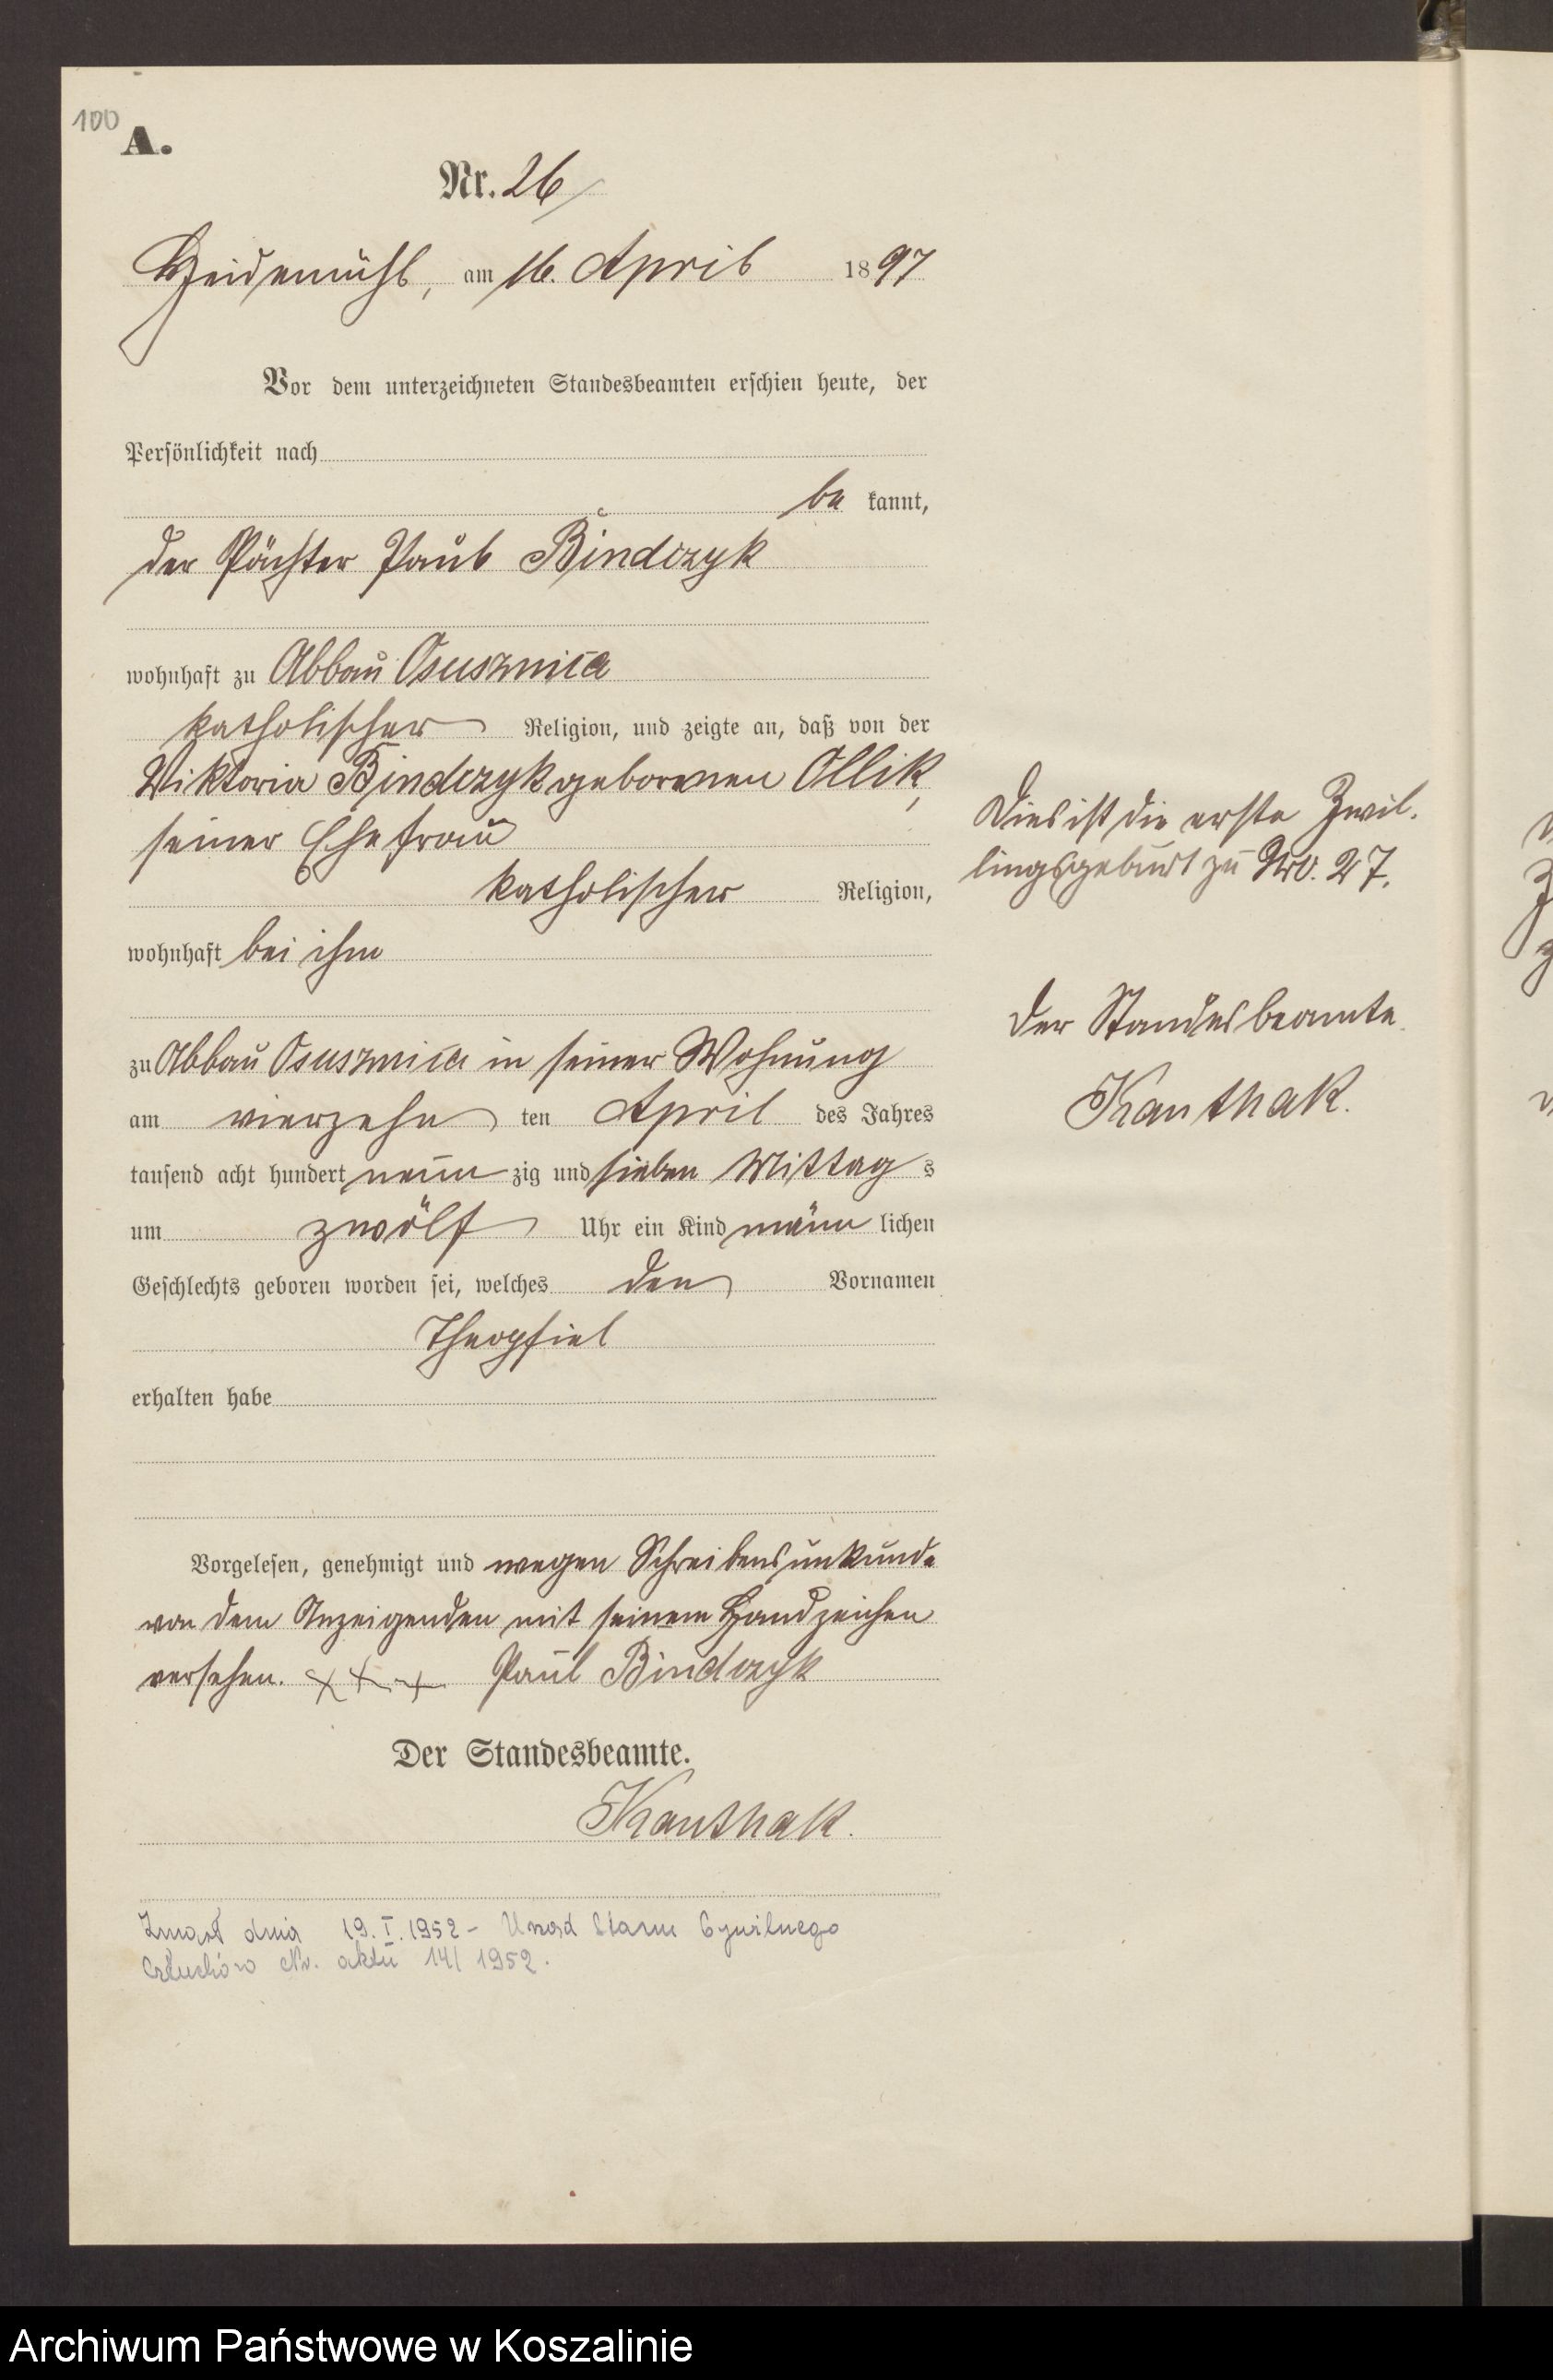 100
A.
Nr. 26
Heidemühl, am 16. April 1897
Vor dem unterzeichneten Standesbeamten erschien heute, der
Persönlichkeit nach
be kannt,
der Pächter Paul Bindczyk
wohnhaft zu Abbau Osusznica
katholischer Religion, und zeigte an, daß von der
Viktoria Bindczyk geborenen Ollik,
seiner Ehefrau
katholischer Religion,
wohnhaft bei ihm
zu Abbau Osusznica in seiner Wohnung
am vierzehn ten April des Jahres
tausend acht hundert neun zig und sieben Mittag s
um zwölf Uhr ein Kind männ lichen
Geschlechts geboren worden sei, welches den Vornamen
Theophiel
erhalten habe
Vorgelesen, genehmigt und wegen Schreibensunkunde
von dem Anzeigenden mit seinem Handzeichen
versehen. xxx Paul Bindczyk
Der Standesbeamte.
Kanthak.
Dies ist die erste Zwil-
lingsgeburt zu No. 27.
Der Standesbeamte.
Kanthak.
Zmarł dnia 19. I. 1952 - Urząd Stanu Cywilnego
Człuchów Nr. aktu 14/1952.
Archiwum Państwowe w Koszalinie